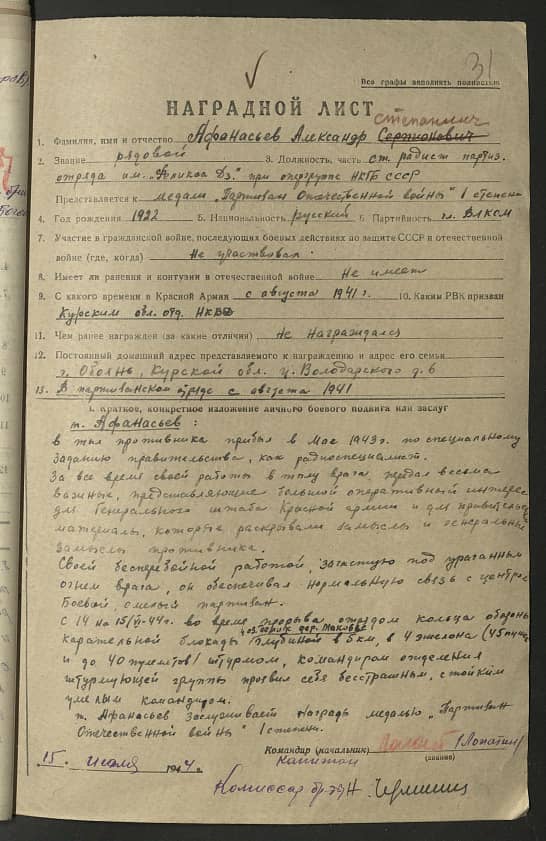 31
Все графы заполнять полностью
НАГРАДНОЙ ЛИСТ
Степанович
1. Фамилия, имя и отчество Афанасьев Александр Сергионович
2. Звание рядовой 3. Должность, часть ст. радист партиз.
отряда им. при опергруппе НКГБ СССР
Представляется к медали „Партизан Отечественной войны" I степени
4. Год рождения 1922 5. Национальность русский 6. Партийность чл. ВЛКСМ
7. Участие в гражданской войне, последующих боевых действиях по защите СССР и отечественной
войне (где, когда) Не участвовал
8. Имеет ли ранения и контузии в отечественной войне Не имеет
9. С какого времени в Красной Армии с августа 1941 г. 10. Каким РВК призван
Курским обл. отд. НКВД
11. Чем ранее награжден (за какие отличия) Не награждался
12. Постоянный домашний адрес представляемого к награждению и адрес его семьи
г. Обоянь, Курской обл. ул. Володарского д. 6
13. В партизанском отряде с августа 1941
I. Краткое, конкретное изложение личного боевого подвига или заслуг
т. Афанасьев:
В тыл противника прибыл в Мае 1943 г. по специальному
заданию правительства, как радиоспециалист.
За все время своей работы в тылу врага передал весьма
важные, представляющие большой оперативный интерес
для Генерального штаба Красной армии и для правительства
материалы, которые раскрывали замыслы и генеральные
замыслы противника.
Своей бесперебойной работой, зачастую под ураганным
огнем врага, он обеспечивал нормальную связь с центром.
Боевой, смелый партизан.
С 14 на 15/VI-44 г. во время прорыва отрядом кольца обороны
дер. Маковье
карательной блокады глубиной в 5 км, в 4 эшелона (45 пушек
и до 40 пулеметов) штурмом, командиром отделения
штурмующей группы проявил себя бесстрашным, стойким
умелым командиром.
т. Афанасьев заслуживает награды медалью „Партизан
Отечественной войны" I степени.
Командир (начальник) (Лопатин)
капитан (звание)
15. июля 1944.
Комиссар бр-ды